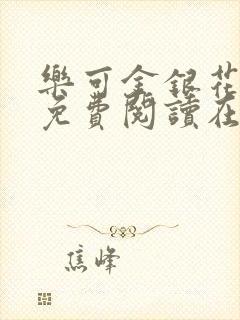 樂可金銀花
免費閱讀在
焦峰